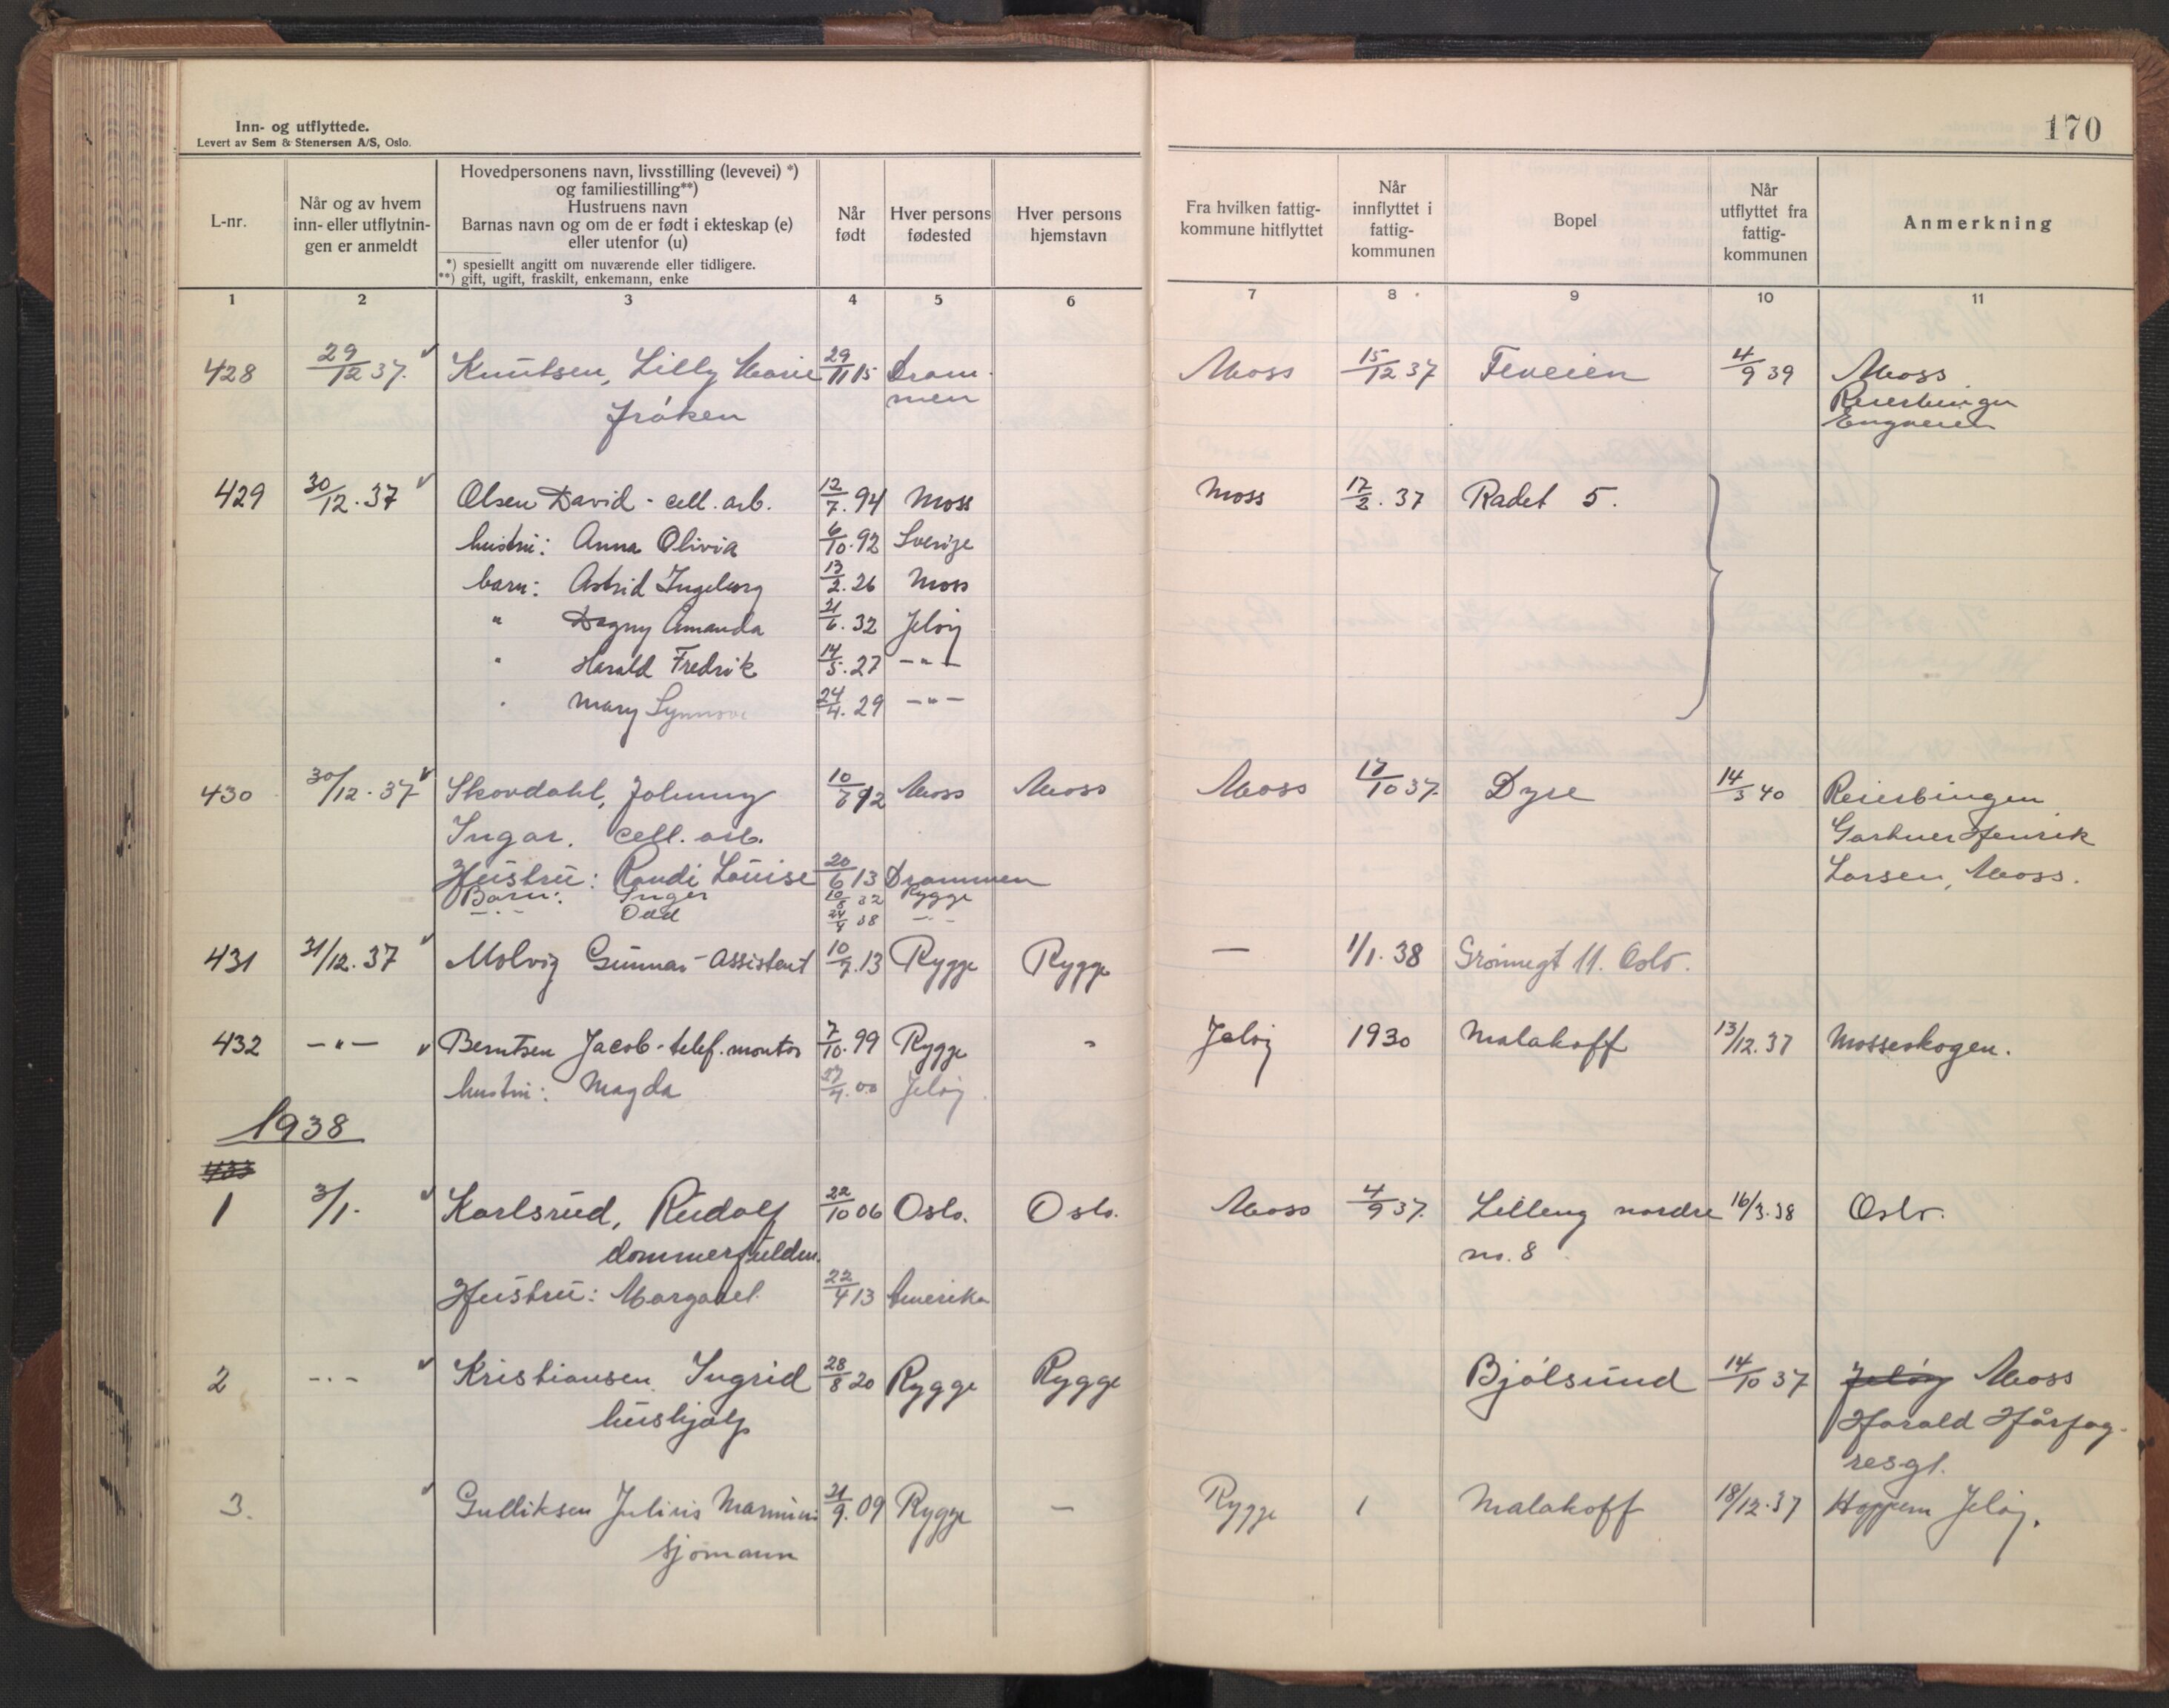 Inn- og utflyttede.
Levert av Sem & Stenersen A/S, Oslo.
170
L-nr.
Når og av hvem inn- eller utflytnin- gen er anmeldt
Hovedpersonens navn, livsstilling (levevei) *)
og familiestilling**)
Hustruens navn
Barnas navn og om de er født i ekteskap (e)
eller utenfor (u)
*) spesiellt angitt om nuværende eller tidligere.
**) gift, ugift, fraskilt, enkemann, enke
Når født
Hver persons fødested
Hver persons hjemstavn
Fra hvilken fattig- kommune hitflyttet
Når innflyttet i fattig- kommunen
Bopel
Når utflyttet fra fattig- kommunen
Anmerkning
1 2 3 4 5 6 7 8 9 10 11
428 29/12 37. Knutsen, Lilly Marie 29/11 15 Dram- Moss 15/12 37 Feveien 4/9 39 Moss
frøken men Reierbingen
Engveien
429 30/12. 37 Olsen David - cell. arb. 12/7. 94 Moss Moss 17/2. 37 Rådet 5.
hustru: Anna Olivia 6/10. 92 Sverige
barn: Astrid Ingeborg 13/2. 26 Moss
" Dagny Amanda 21/6. 32 Jeløy
" Harald Fredrik 14/5. 27 -"-
" Mary Synnøve 24/4. 29 -"-
430 30/12. 37 Skovdahl, Johnny 10/6 92 Moss Moss Moss 17/10 37. Dyre 14/3 40 Reierbingen
Ingar. cell. arb. Gartner Henrik
Hustru: Randi Louise 20/6 13 Drammen Larsen, Moss.
Barn: Inger 10/8 32 Rygge
-"- Odd 24/4 38 -"-
431 31/12. 37 Molvig Gunnar - Assistent 10/9. 13 Rygge Rygge — 1/1. 38 Grønnegt 11. Oslo.
432 -"- Berntsen Jacob - telef. montør 7/10. 99 Rygge " Jeløy 1930 Malakoff 13/12. 37 Mosseskogen.
hustru: Magda 27/4. 00 Jeløy
1938
433
1 3/1. Karlsrud, Rudolf 22/10 06 Oslo. Oslo. Moss 4/9 37. Lilleng nordre 16/3. 38 Oslo.
dommerfuldm. no. 8
Hustru: Margaret 22/4 13 Amerika
2 -"- Kristiansen Ingrid 28/8 20 Rygge Rygge Bjølsund 14/10 37 Jeløy Moss
hushjelp Harald Hårfag-
resgt.
3. Gulliksen Julius Marinius 21/9. 09 Rygge — Rygge 1 Malakoff 18/12. 37 Hoppern Jeløy.
sjømann